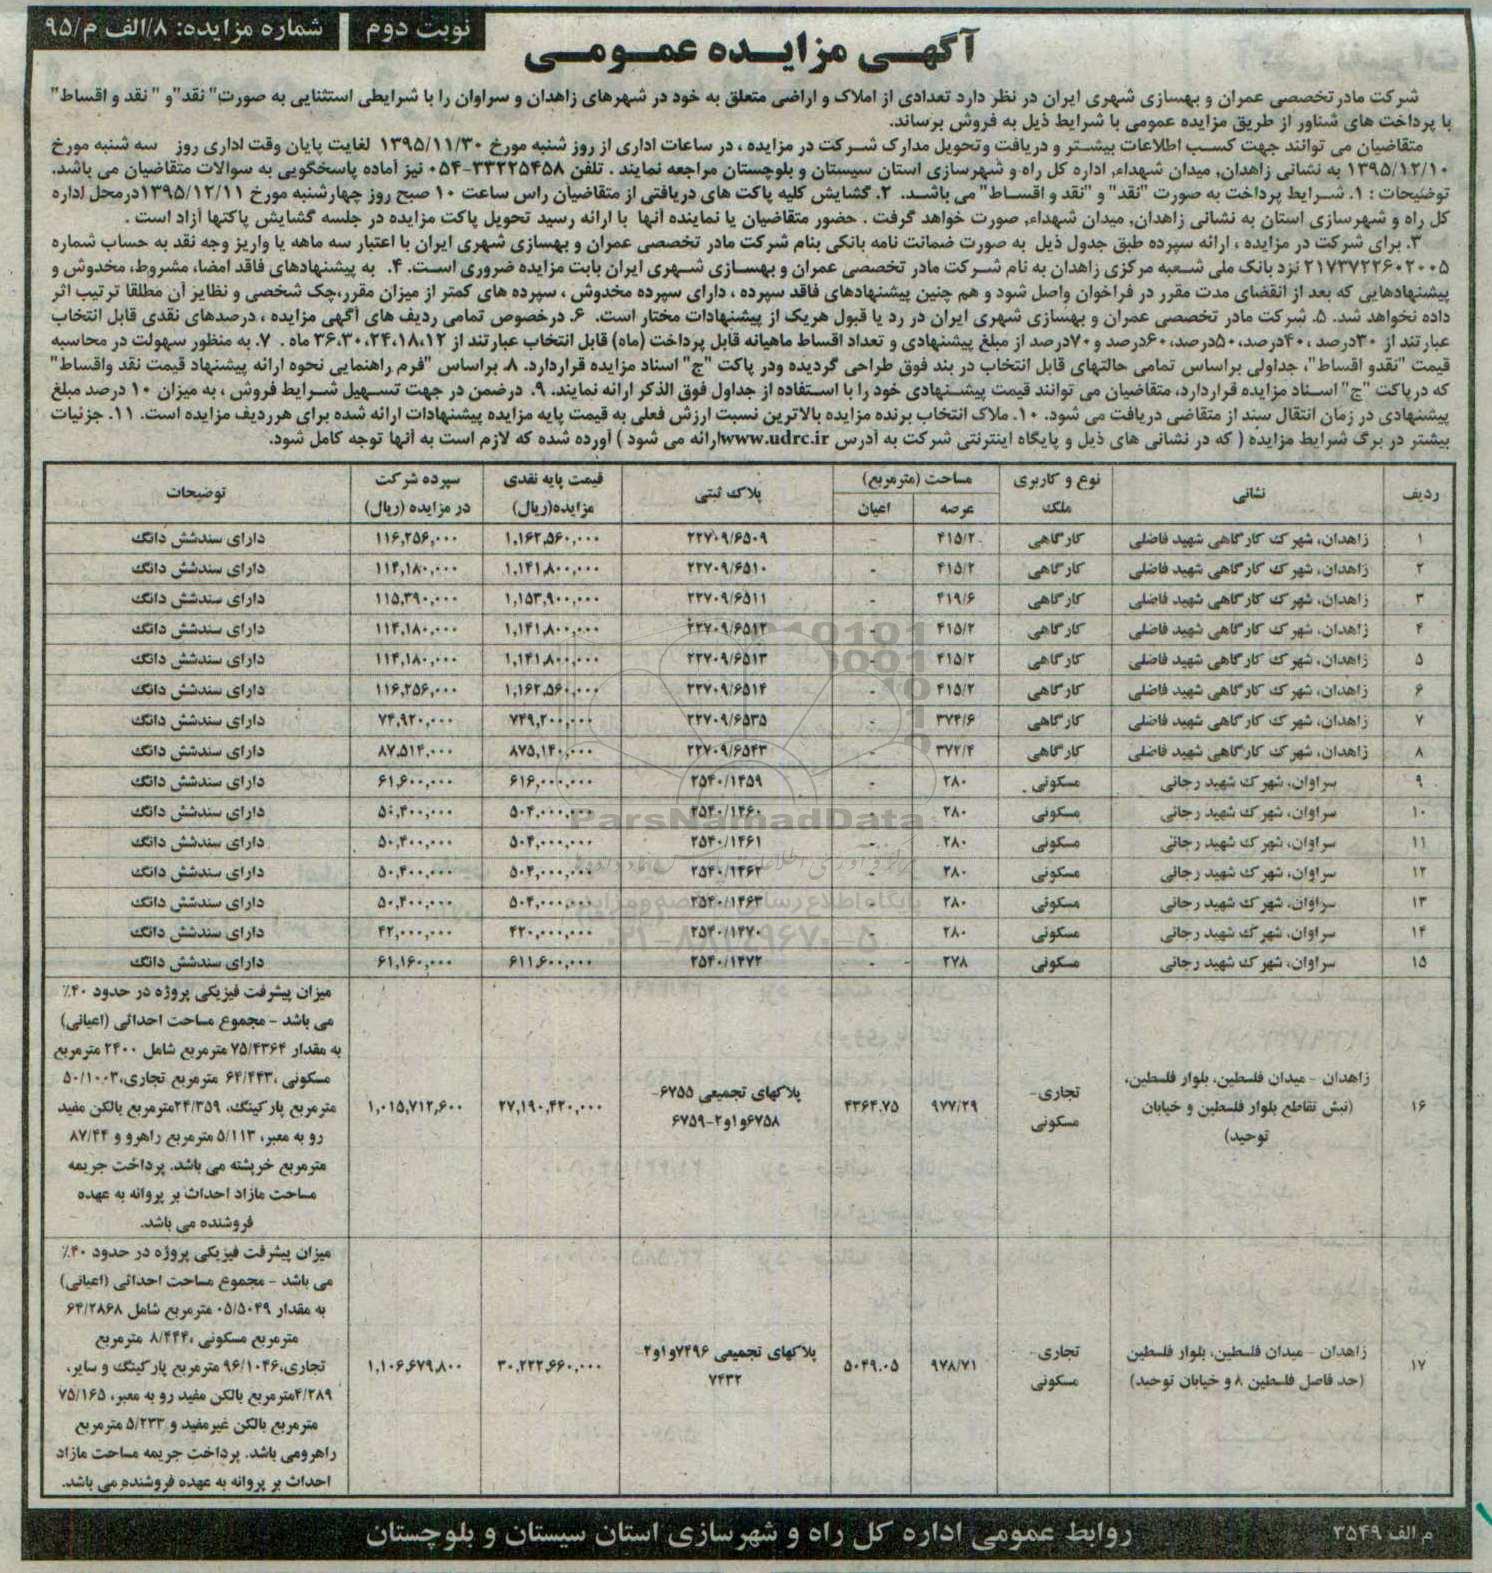 شماره مزایده: ۸/الف م/۹۵
نوبت دوم
آگهی مزایده عمومی
شرکت مادرتخصصی عمران و بهسازی شهری ایران در نظر دارد تعدادی از املاک و اراضی متعلق به خود در شهرهای زاهدان و سراوان را با شرایطی استثنایی به صورت" نقد"و " نقد و اقساط"
با پرداخت های شناور از طریق مزایده عمومی با شرایط ذیل به فروش برساند.
متقاضیان می توانند جهت کسب اطلاعات بیشتر و دریافت وتحویل مدارک شرکت در مزایده ، در ساعات اداری از روز شنبه مورخ ۱۳۹۵/۱۱/۳۰ لغایت پایان وقت اداری روز سه شنبه مورخ
۱۳۹۵/۱۲/۱۰ به نشانی زاهدان، میدان شهداء، اداره کل راه و شهرسازی استان سیستان و بلوچستان مراجعه نمایند . تلفن ۳۳۲۲۵۴۵۸-۰۵۴ نیز آماده پاسخگویی به سوالات متقاضیان می باشد.
توضیحات : ۱. شرایط پرداخت به صورت "نقد" و "نقد و اقساط" می باشد. ۲. گشایش کلیه پاکت های دریافتی از متقاضیان راس ساعت ۱۰ صبح روز چهارشنبه مورخ ۱۳۹۵/۱۲/۱۱درمحل اداره
کل راه و شهرسازی استان به نشانی زاهدان، میدان شهداء، صورت خواهد گرفت . حضور متقاضیان یا نماینده آنها با ارائه رسید تحویل پاکت مزایده در جلسه گشایش پاکتها آزاد است .
۳. برای شرکت در مزایده ، ارائه سپرده طبق جدول ذیل به صورت ضمانت نامه بانکی بنام شرکت مادر تخصصی عمران و بهسازی شهری ایران با اعتبار سه ماهه یا واریز وجه نقد به حساب شماره
۲۱۷۳۷۲۲۶۰۲۰۰۵ نزد بانک ملی شعبه مرکزی زاهدان به نام شرکت مادر تخصصی عمران و بهسازی شهری ایران بابت مزایده ضروری است. ۴. به پیشنهادهای فاقد امضا، مشروط، مخدوش و
پیشنهادهایی که بعد از انقضای مدت مقرر در فراخوان واصل شود و هم چنین پیشنهادهای فاقد سپرده ، دارای سپرده مخدوش ، سپرده های کمتر از میزان مقرر،چک شخصی و نظایز آن مطلقا ترتیب اثر
داده نخواهد شد. ۵. شرکت مادر تخصصی عمران و بهسازی شهری ایران در رد یا قبول هریک از پیشنهادات مختار است. ۶. درخصوص تمامی ردیف های آگهی مزایده ، درصدهای نقدی قابل انتخاب
عبارتند از ۳۰درصد ،۴۰درصد،۵۰درصد،۶۰درصد و ۷۰درصد از مبلغ پیشنهادی و تعداد اقساط ماهیانه قابل پرداخت (ماه) قابل انتخاب عبارتند از ۳۶،۳۰،۲۴،۱۸،۱۲ ماه . ۷. به منظور سهولت در محاسبه
قیمت "نقدو اقساط"، جداولی براساس تمامی حالتهای قابل انتخاب در بند فوق طراحی گردیده ودر پاکت "ج" اسناد مزایده قراردارد. ۸. براساس "فرم راهنمایی نحوه ارائه پیشنهاد قیمت نقد واقساط"
که درپاکت "ج" اسناد مزایده قراردارد، متقاضیان می توانند قیمت پیشنهادی خود را با استفاده از جداول فوق الذکر ارائه نمایند. ۹. درضمن در جهت تسهیل شرایط فروش ، به میزان ۱۰ درصد مبلغ
پیشنهادی در زمان انتقال سند از متقاضی دریافت می شود. ۱۰. ملاک انتخاب برنده مزایده بالاترین نسبت ارزش فعلی به قیمت پایه مزایده پیشنهادات ارائه شده برای هرردیف مزایده است. ۱۱. جزئیات
بیشتر در برگ شرایط مزایده ( که در نشانی های ذیل و پایگاه اینترنتی شرکت به آدرس www.udrc.irارائه می شود ) آورده شده که لازم است به آنها توجه کامل شود.
ردیف | نشانی | نوع و کاربری ملک | مساحت (مترمربع) عرصه | اعیان | پلاک ثبتی | قیمت پایه نقدی مزایده(ریال) | سپرده شرکت در مزایده (ریال) | توضیحات
۱ | زاهدان، شهرک کارگاهی شهید فاضلی | کارگاهی | ۴۱۵/۲ | - | ۲۲۷۰۹/۶۵۰۹ | ۱,۱۶۲,۵۶۰,۰۰۰ | ۱۱۶,۲۵۶,۰۰۰ | دارای سندشش دانگ
۲ | زاهدان، شهرک کارگاهی شهید فاضلی | کارگاهی | ۴۱۵/۲ | - | ۲۲۷۰۹/۶۵۱۰ | ۱,۱۴۱,۸۰۰,۰۰۰ | ۱۱۴,۱۸۰,۰۰۰ | دارای سندشش دانگ
۳ | زاهدان، شهرک کارگاهی شهید فاضلی | کارگاهی | ۴۱۹/۶ | - | ۲۲۷۰۹/۶۵۱۱ | ۱,۱۵۳,۹۰۰,۰۰۰ | ۱۱۵,۳۹۰,۰۰۰ | دارای سندشش دانگ
۴ | زاهدان، شهرک کارگاهی شهید فاضلی | کارگاهی | ۴۱۵/۲ | - | ۲۲۷۰۹/۶۵۱۲ | ۱,۱۴۱,۸۰۰,۰۰۰ | ۱۱۴,۱۸۰,۰۰۰ | دارای سندشش دانگ
۵ | زاهدان، شهرک کارگاهی شهید فاضلی | کارگاهی | ۴۱۵/۲ | - | ۲۲۷۰۹/۶۵۱۳ | ۱,۱۴۱,۸۰۰,۰۰۰ | ۱۱۴,۱۸۰,۰۰۰ | دارای سندشش دانگ
۶ | زاهدان، شهرک کارگاهی شهید فاضلی | کارگاهی | ۴۱۵/۲ | - | ۲۲۷۰۹/۶۵۱۴ | ۱,۱۶۲,۵۶۰,۰۰۰ | ۱۱۶,۲۵۶,۰۰۰ | دارای سندشش دانگ
۷ | زاهدان، شهرک کارگاهی شهید فاضلی | کارگاهی | ۳۷۴/۶ | - | ۲۲۷۰۹/۶۵۳۵ | ۷۴۹,۲۰۰,۰۰۰ | ۷۴,۹۲۰,۰۰۰ | دارای سندشش دانگ
۸ | زاهدان، شهرک کارگاهی شهید فاضلی | کارگاهی | ۳۷۲/۴ | - | ۲۲۷۰۹/۶۵۴۳ | ۸۷۵,۱۴۰,۰۰۰ | ۸۷,۵۱۴,۰۰۰ | دارای سندشش دانگ
۹ | سراوان، شهرک شهید رجائی | مسکونی | ۲۸۰ | - | ۲۵۴۰/۱۴۵۹ | ۶۱۶,۰۰۰,۰۰۰ | ۶۱,۶۰۰,۰۰۰ | دارای سندشش دانگ
۱۰ | سراوان، شهرک شهید رجائی | مسکونی | ۲۸۰ | - | ۲۵۴۰/۱۴۶۰ | ۵۰۴,۰۰۰,۰۰۰ | ۵۰,۴۰۰,۰۰۰ | دارای سندشش دانگ
۱۱ | سراوان، شهرک شهید رجائی | مسکونی | ۲۸۰ | - | ۲۵۴۰/۱۴۶۱ | ۵۰۴,۰۰۰,۰۰۰ | ۵۰,۴۰۰,۰۰۰ | دارای سندشش دانگ
۱۲ | سراوان، شهرک شهید رجائی | مسکونی | ۲۸۰ | - | ۲۵۴۰/۱۴۶۲ | ۵۰۴,۰۰۰,۰۰۰ | ۵۰,۴۰۰,۰۰۰ | دارای سندشش دانگ
۱۳ | سراوان، شهرک شهید رجائی | مسکونی | ۲۸۰ | - | ۲۵۴۰/۱۴۶۳ | ۵۰۴,۰۰۰,۰۰۰ | ۵۰,۴۰۰,۰۰۰ | دارای سندشش دانگ
۱۴ | سراوان، شهرک شهید رجائی | مسکونی | ۲۸۰ | - | ۲۵۴۰/۱۴۷۰ | ۴۲۰,۰۰۰,۰۰۰ | ۴۲,۰۰۰,۰۰۰ | دارای سندشش دانگ
۱۵ | سراوان، شهرک شهید رجائی | مسکونی | ۲۷۸ | - | ۲۵۴۰/۱۴۷۲ | ۶۱۱,۶۰۰,۰۰۰ | ۶۱,۱۶۰,۰۰۰ | دارای سندشش دانگ
۱۶ | زاهدان - میدان فلسطین، بلوار فلسطین، (نبش تقاطع بلوار فلسطین و خیابان توحید) | تجاری- مسکونی | ۹۷۷/۲۹ | ۴۳۶۴.۷۵ | پلاکهای تجمیعی ۶۷۵۵- ۶۷۵۸و۱و۲-۶۷۵۹ | ۲۷,۱۹۰,۴۲۰,۰۰۰ | ۱,۰۱۵,۷۱۲,۶۰۰
میزان پیشرفت فیزیکی پروژه در حدود ۴۰٪
می باشد - مجموع مساحت احداثی (اعیانی)
به مقدار ۷۵/۴۳۶۴ مترمربع شامل ۲۴۰۰ مترمربع
مسکونی ،۶۴/۴۴۳ مترمربع تجاری،۵۰/۱۰۰۳
مترمربع پارکینگ، ۲۴/۳۵۹مترمربع بالکن مفید
رو به معبر، ۵/۱۱۳ مترمربع راهرو و ۸۷/۴۴
مترمربع خرپشته می باشد. پرداخت جریمه
مساحت مازاد احداث بر پروانه به عهده
فروشنده می باشد.
۱۷ | زاهدان - میدان فلسطین، بلوار فلسطین (حد فاصل فلسطین ۸ و خیابان توحید) | تجاری- مسکونی | ۹۷۸/۷۱ | ۵۰۴۹.۰۵ | پلاکهای تجمیعی ۷۴۹۶و۱و۲- ۷۴۳۲ | ۳۰,۲۲۲,۶۶۰,۰۰۰ | ۱,۱۰۶,۶۷۹,۸۰۰
میزان پیشرفت فیزیکی پروژه در حدود ۴۰٪
می باشد - مجموع مساحت احداثی (اعیانی)
به مقدار ۰۵/۵۰۴۹ مترمربع شامل ۶۴/۲۸۶۸
مترمربع مسکونی ،۸/۴۴۴ مترمربع
تجاری،۹۶/۱۰۴۶ مترمربع پارکینگ و سایر،
۴/۲۸۹مترمربع بالکن مفید رو به معبر، ۷۵/۱۶۵
مترمربع بالکن غیرمفید و ۵/۲۳۳ مترمربع
راهرومی باشد. پرداخت جریمه مساحت مازاد
احداث بر پروانه به عهده فروشنده می باشد.
ParsNamadData
م الف ۳۵۴۹
روابط عمومی اداره کل راه و شهرسازی استان سیستان و بلوچستان